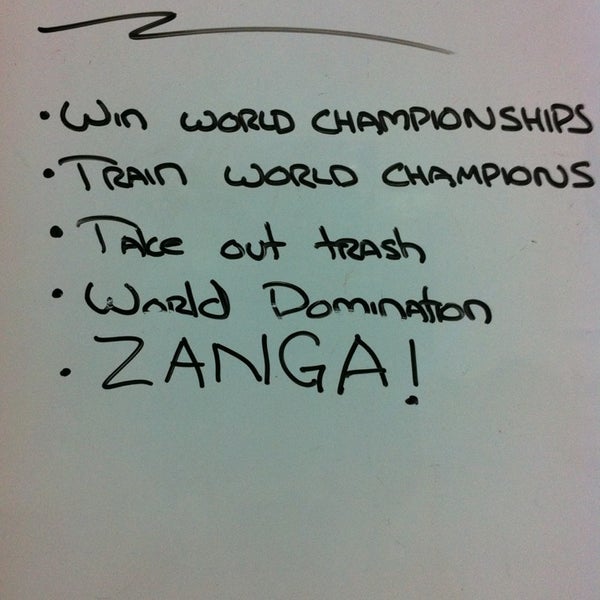 • Win WORLD CHAMPIONSHIPS
• TRAIN WORLD CHAMPIONS
• TAke out tRASh
• World DominAtion
• ZANGA!